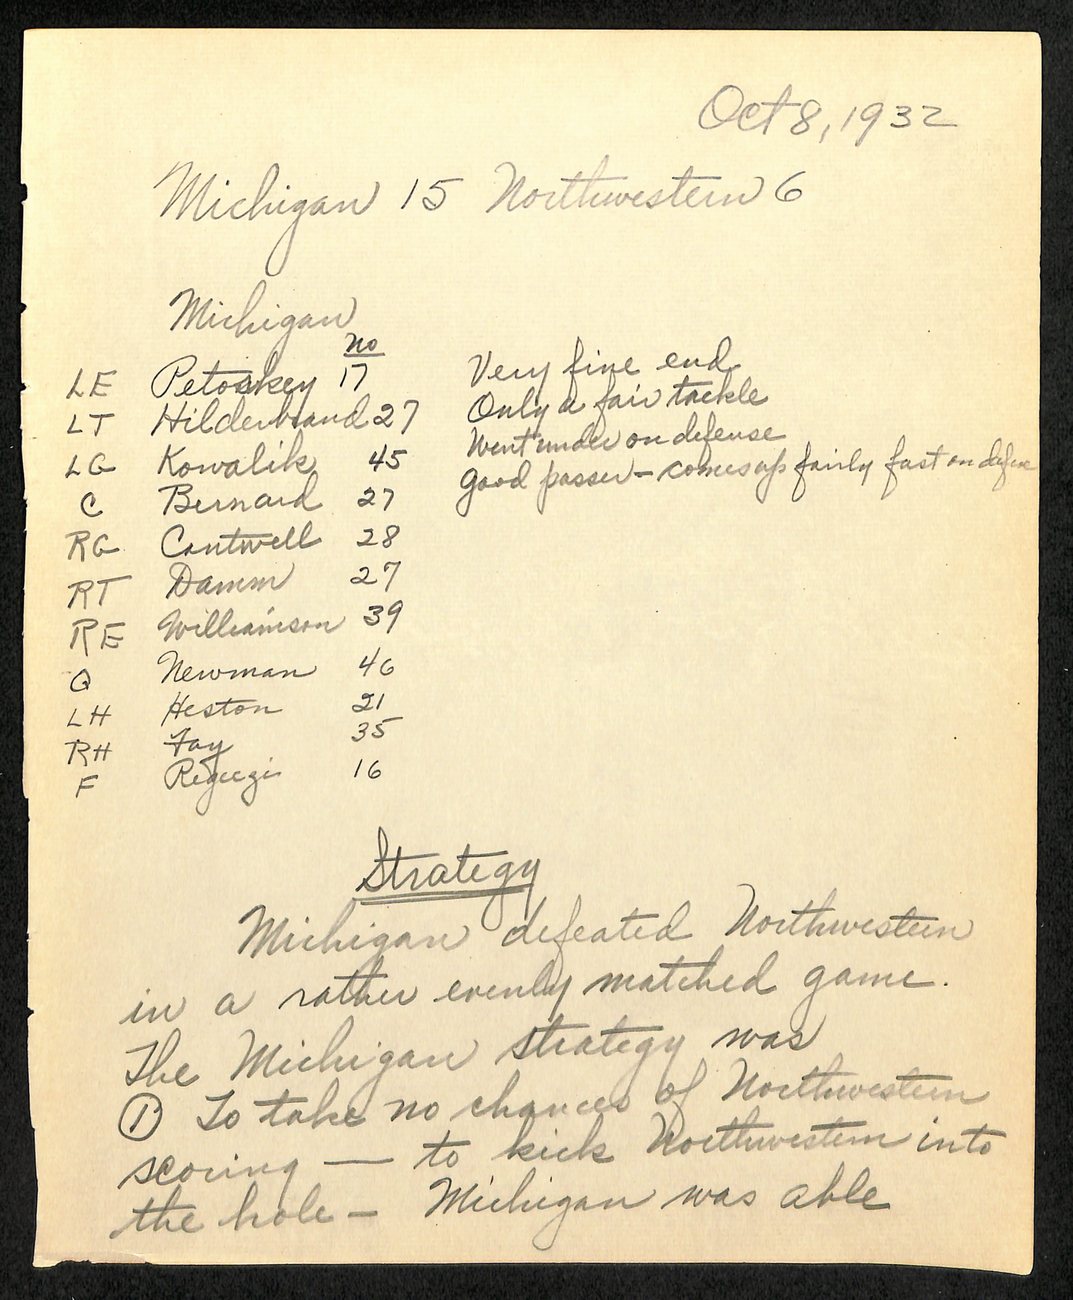 Oct 8, 1932
Michigan 15 Northwestern 6
Michigan
no
LE Petoskey 17 Very fine end
LT Hilderbrand 27 Only a fair tackle
LG Kowalik 45 Went under on defense
C Bernard 27 Good passer – comes up fairly fast on defense
RG Cantwell 28
RT Damm 27
RE Williamson 39
Q Newman 46
LH Heston 21
RH Fay 35
F Regeczi 16
Strategy
Michigan defeated Northwestern
in a rather evenly matched game.
The Michigan strategy was
① To take no chances of Northwestern
scoring — to kick Northwestern into
the hole – Michigan was able